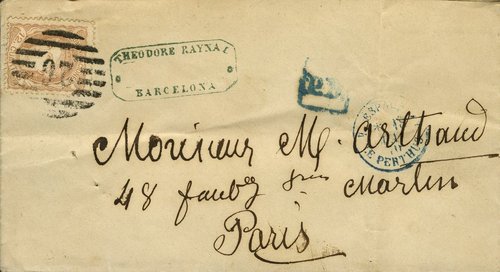 THEODORE RAYNAL
BARCELONA
P.D.
LE PERTHUS
Monsieur M. Arthaud
48 faubg St Martin
Paris